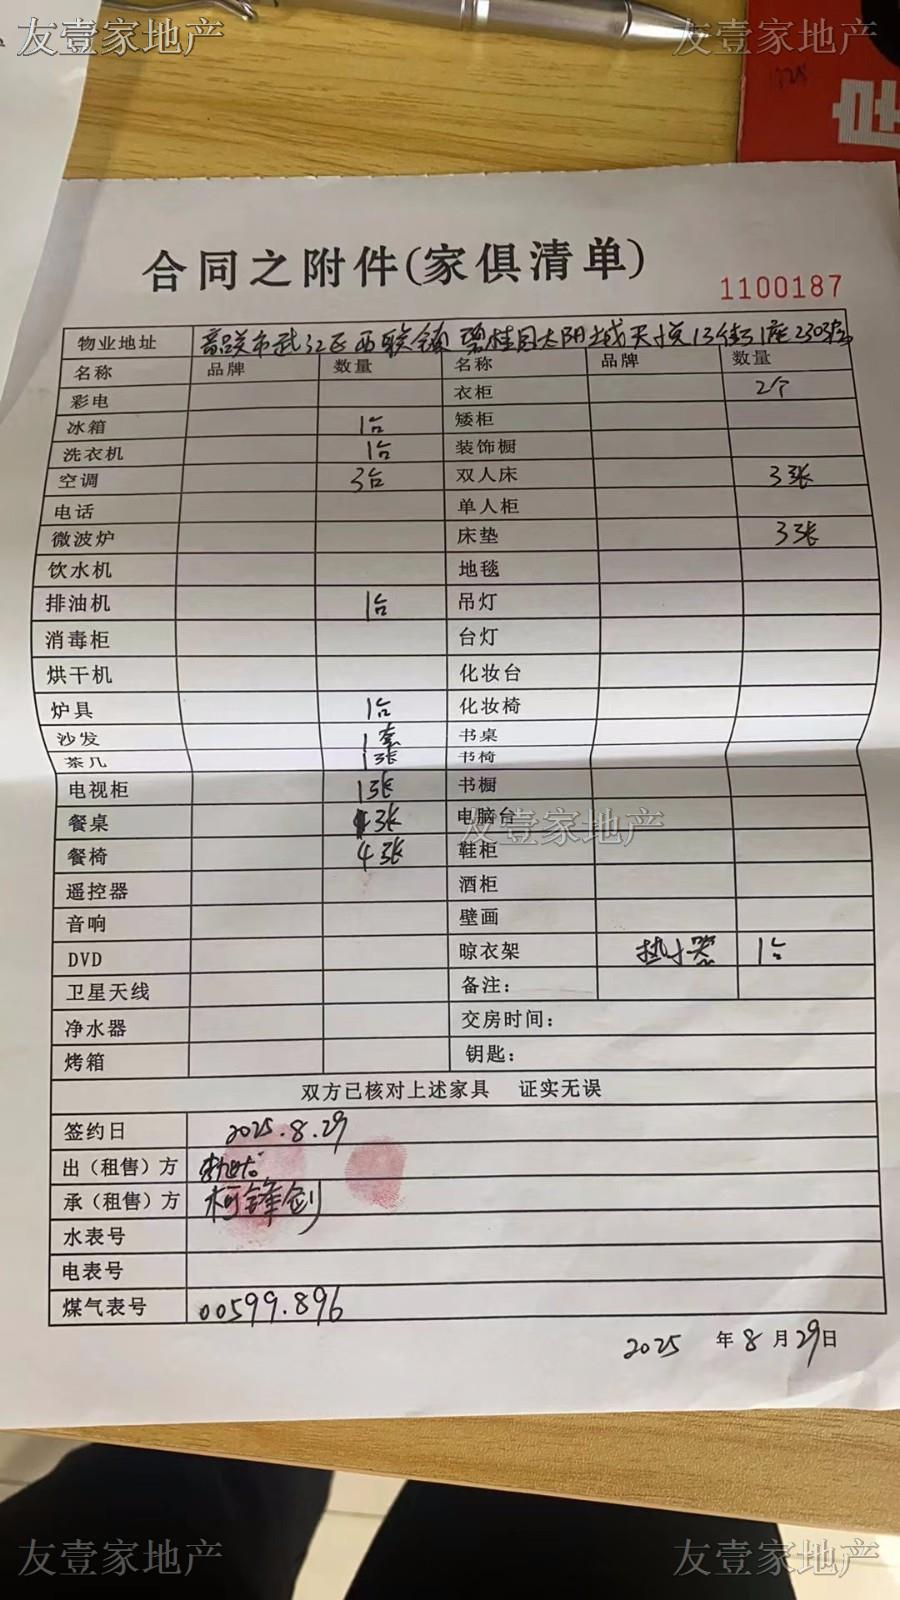 友壹家地产 友壹家地产
合同之附件(家俱清单)
1100187
物业地址 韶关市武江区西联镇碧桂园太阳城天悦13街1座2303房
名称 品牌 数量 名称 品牌 数量
彩电 衣柜 2个
冰箱 1台 矮柜
洗衣机 1台 装饰橱
空调 3台 双人床 3张
电话 单人柜
微波炉 床垫 3张
饮水机 地毯
排油机 1台 吊灯
消毒柜 台灯
烘干机 化妆台
炉具 1台 化妆椅
沙发 1套 书桌
茶几 1张 书椅
电视柜 1张 书橱
餐桌 张 电脑台
友壹家地产
餐椅 4张 鞋柜
遥控器 酒柜
音响 壁画
DVD 晾衣架 热水器 1台
卫星天线 备注：
净水器 交房时间：
烤箱 钥匙：
双方已核对上述家具 证实无误
签约日 2025.8.29
出（租售）方
承（租售）方 柯锋剑
水表号
电表号
煤气表号 00599.896
2025 年 8 月 29 日
友壹家地产 友壹家地产